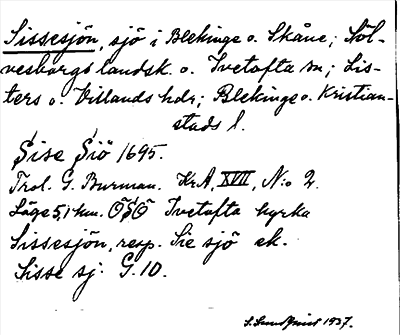 Sissesjön, sjö i Blekinge o. Skåne; Söl-
vesborgs landsk. o. Ivetofta sn; Lis-
ters o. Villands hdr; Blekinge o. Kristian-
stads l.
Sise Siö 1695.
Trol. G. Burman. Kr.A, XVII, N:o 2.
Läge 5,1 km. ÖSÖ Ivetofta kyrka
Sissesjön, resp. Sie sjö ek.
Sisse sj. G. 10.
1937.